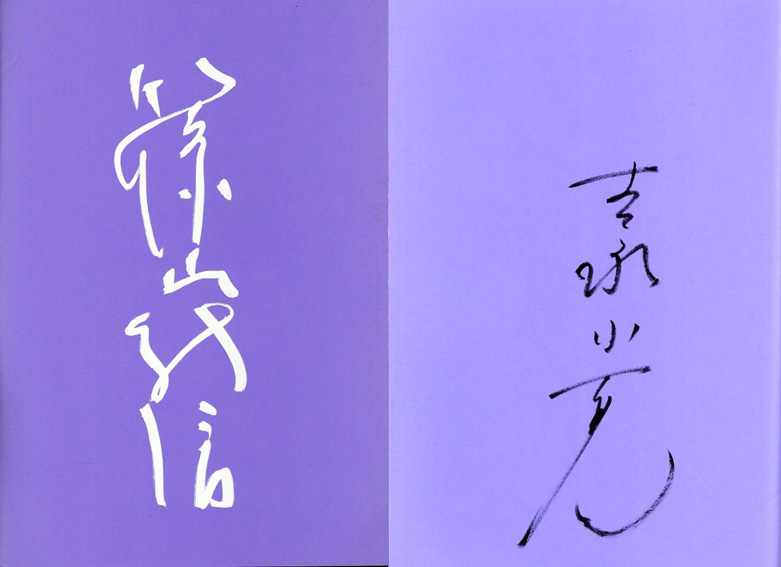 吉永小百合
篠山紀信